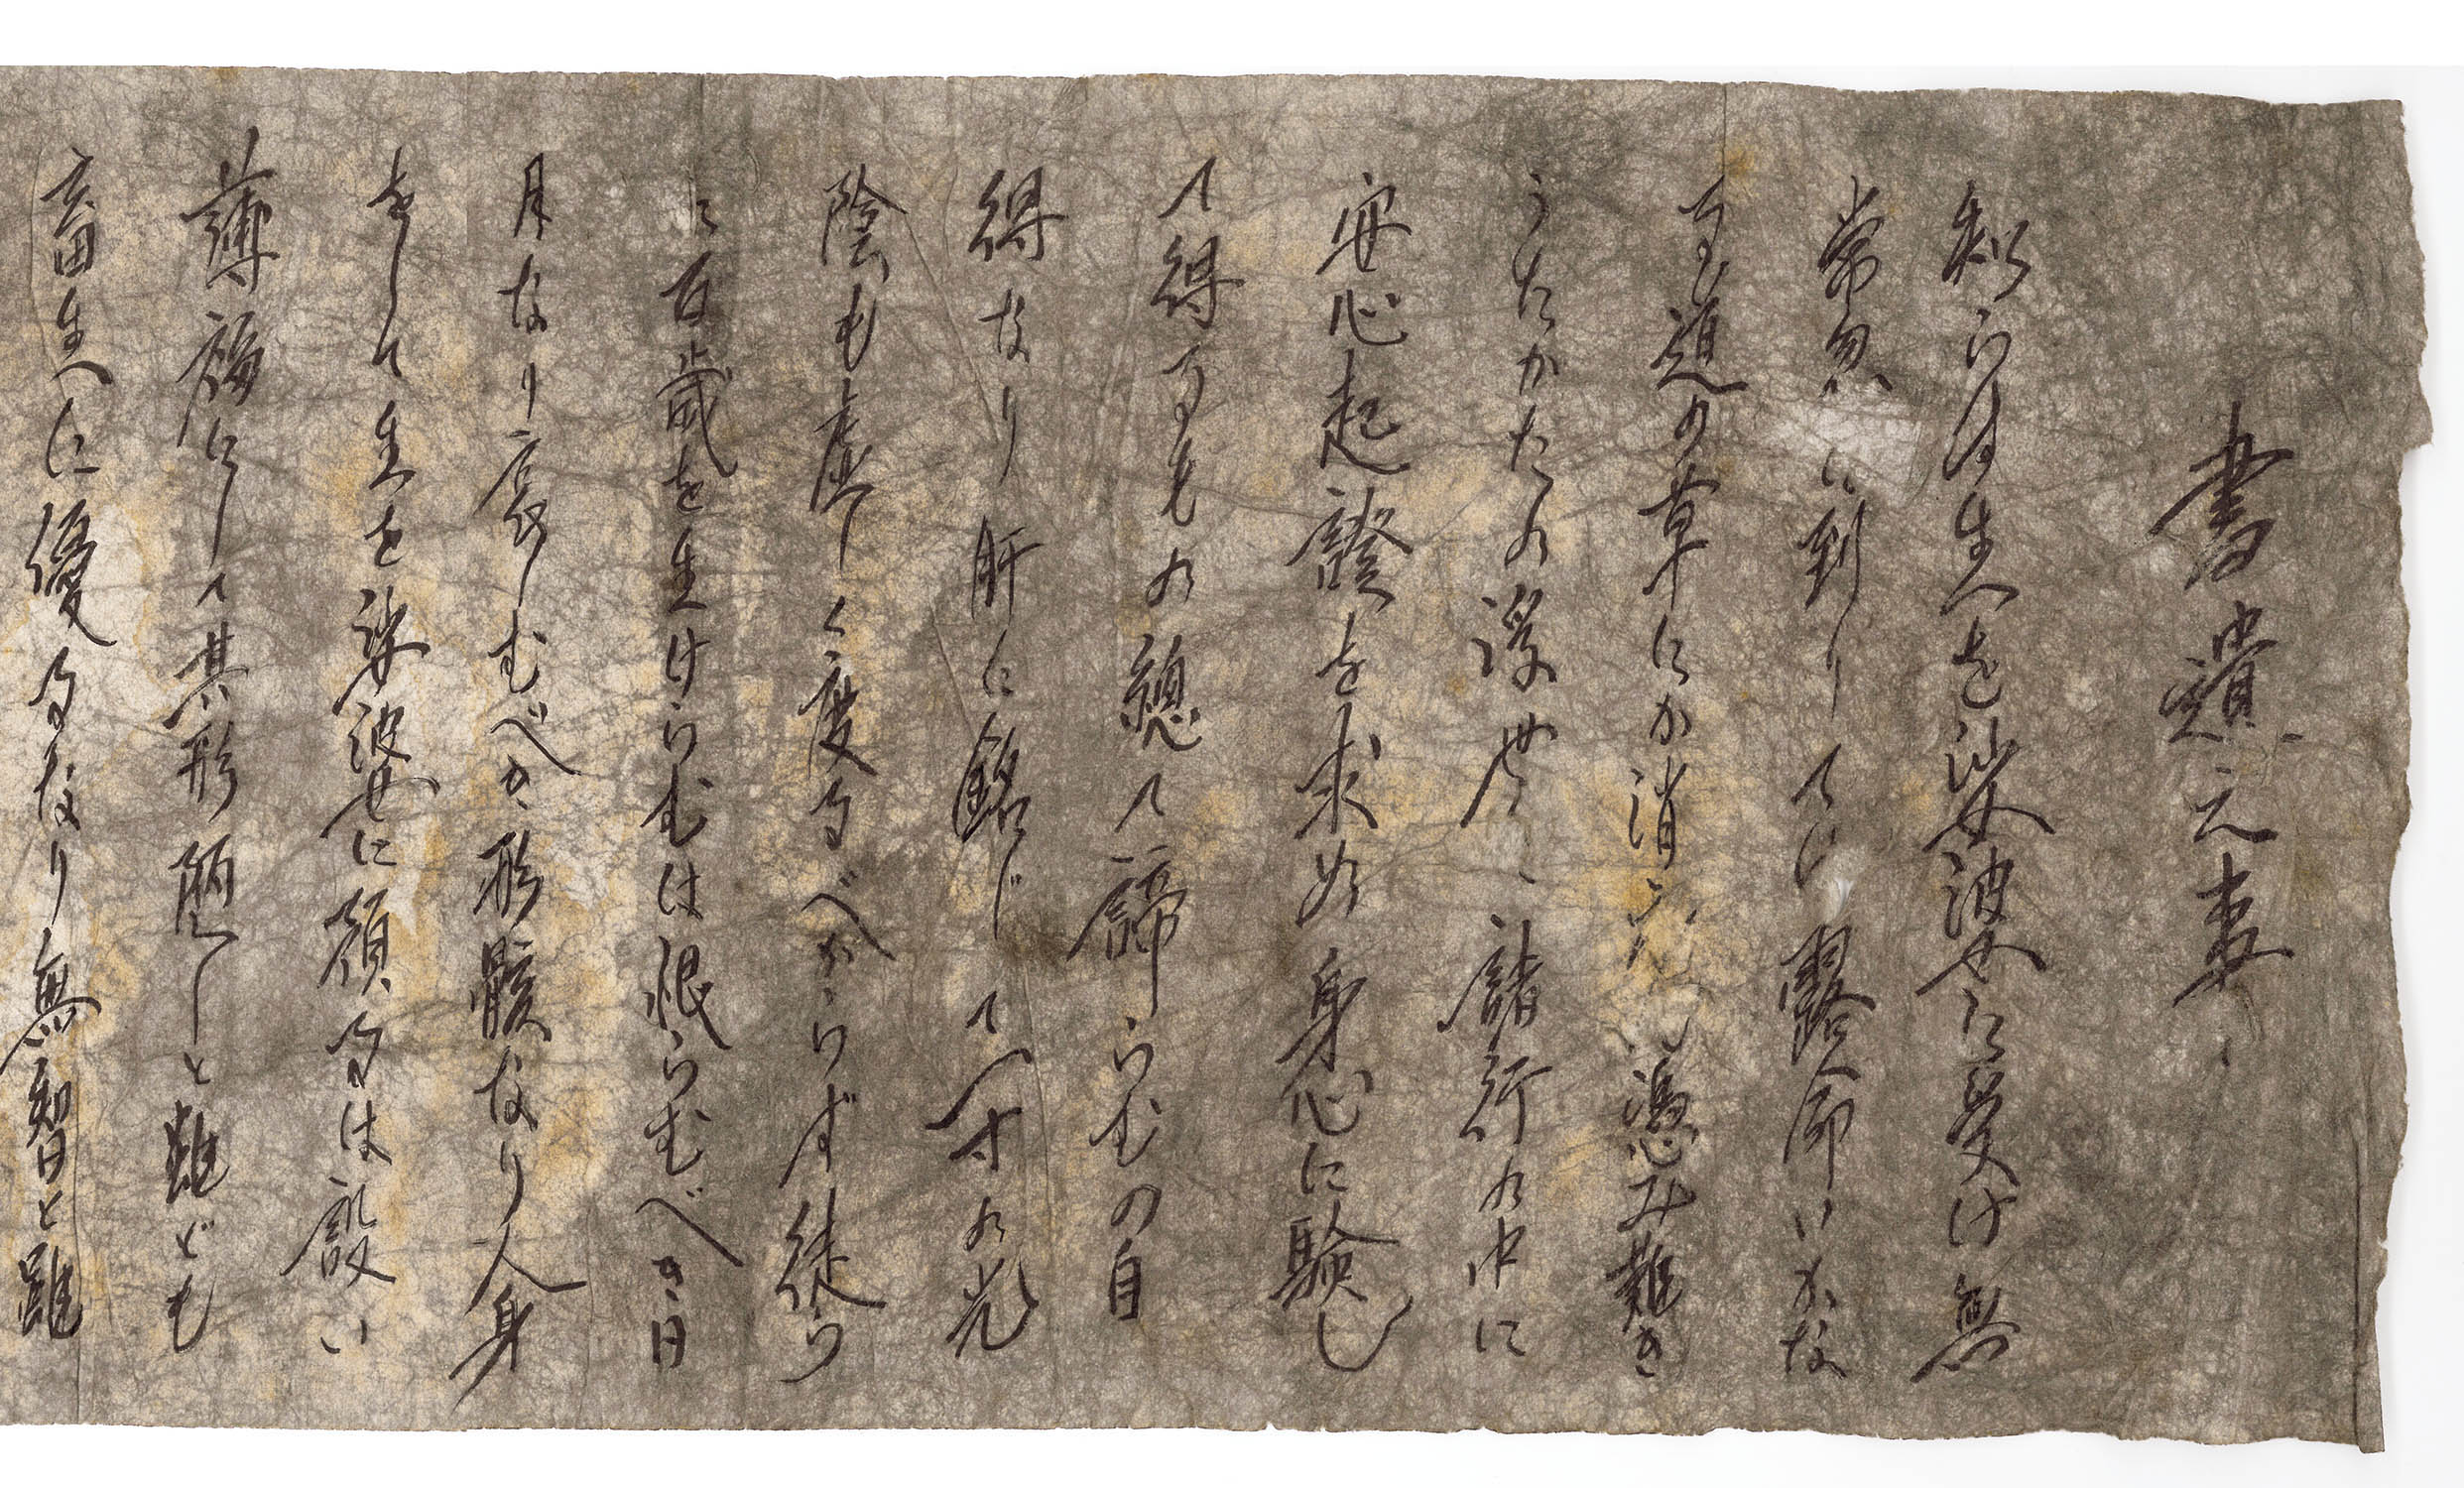 書遺元妻
知らず生を娑婆に受け無
常忽ちに到りては露命いかな
る道の草にか消えん憑み難き
うたかたの浮世 諸行の中に
安心起證を求め身心に験し
て得るもの總て諦らむの自
得なり肝に銘じて一寸の光
陰も虚しく度るべからず徒ら
に百歳を生けらむは恨らむべき日
月なり哀しむべき形骸なり人身
をして生を娑婆に願るは
薄福にして其形陋しと雖ども
畜生に優るなり無智と雖